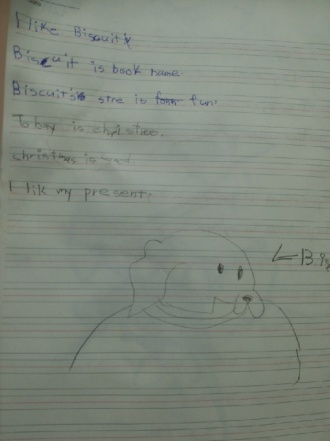 I like Biscuit
Biscuit is book name.
Biscuit's stre is fun.
Today is chpistice.
christmas is
I lik my present.
← Bis